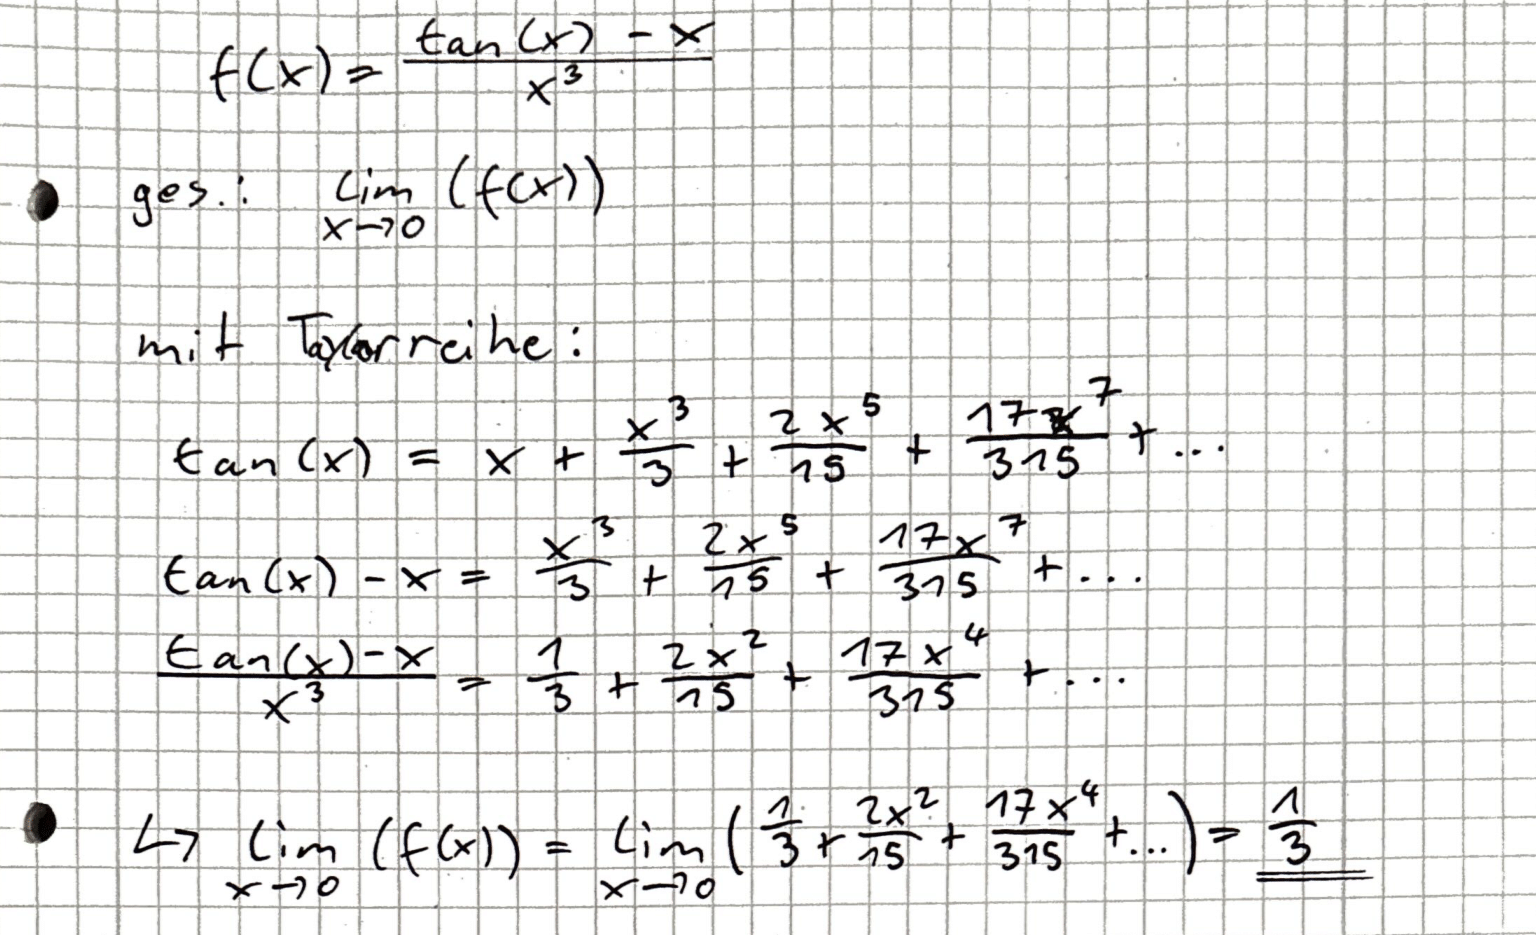 f(x) = (tan(x) - x)/x³
ges.: lim x→0 (f(x))
mit Taylorreihe:
tan(x) = x + x³/3 + 2x⁵/15 + 17x⁷/315 + ...
tan(x) - x = x³/3 + 2x⁵/15 + 17x⁷/315 + ...
(tan(x) - x)/x³ = 1/3 + 2x²/15 + 17x⁴/315 + ...
↳ lim x→0 (f(x)) = lim x→0 (1/3 + 2x²/15 + 17x⁴/315 + ...) = 1/3